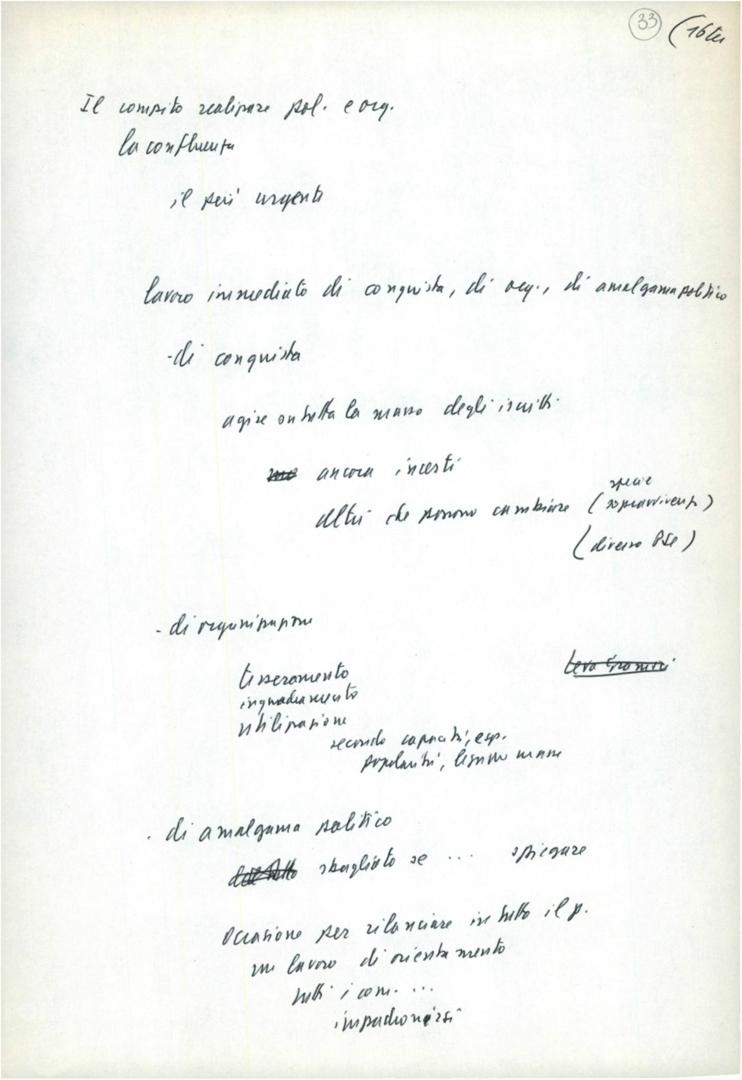 33 (16ter
Il compito realizzare pol. e org.
la confluenza
il più urgente
lavoro immediato di conquista, di org., di amalgama politico
- di conquista
agire su tutta la massa degli iscritti
ancora incerti
specie
altri che possono cambiare (sopravvivenza)
(diverso PSI)
- di organizzazione
leva Gramsci
tesseramento
inquadramento
utilizzazione
secondo capacità, esp.
popolarità, legame masse
- di amalgama politico
sbagliato se ... spiegare
occasione per rilanciare in tutto il p.
un lavoro di orientamento
tutti i com. ...
impadronirsi